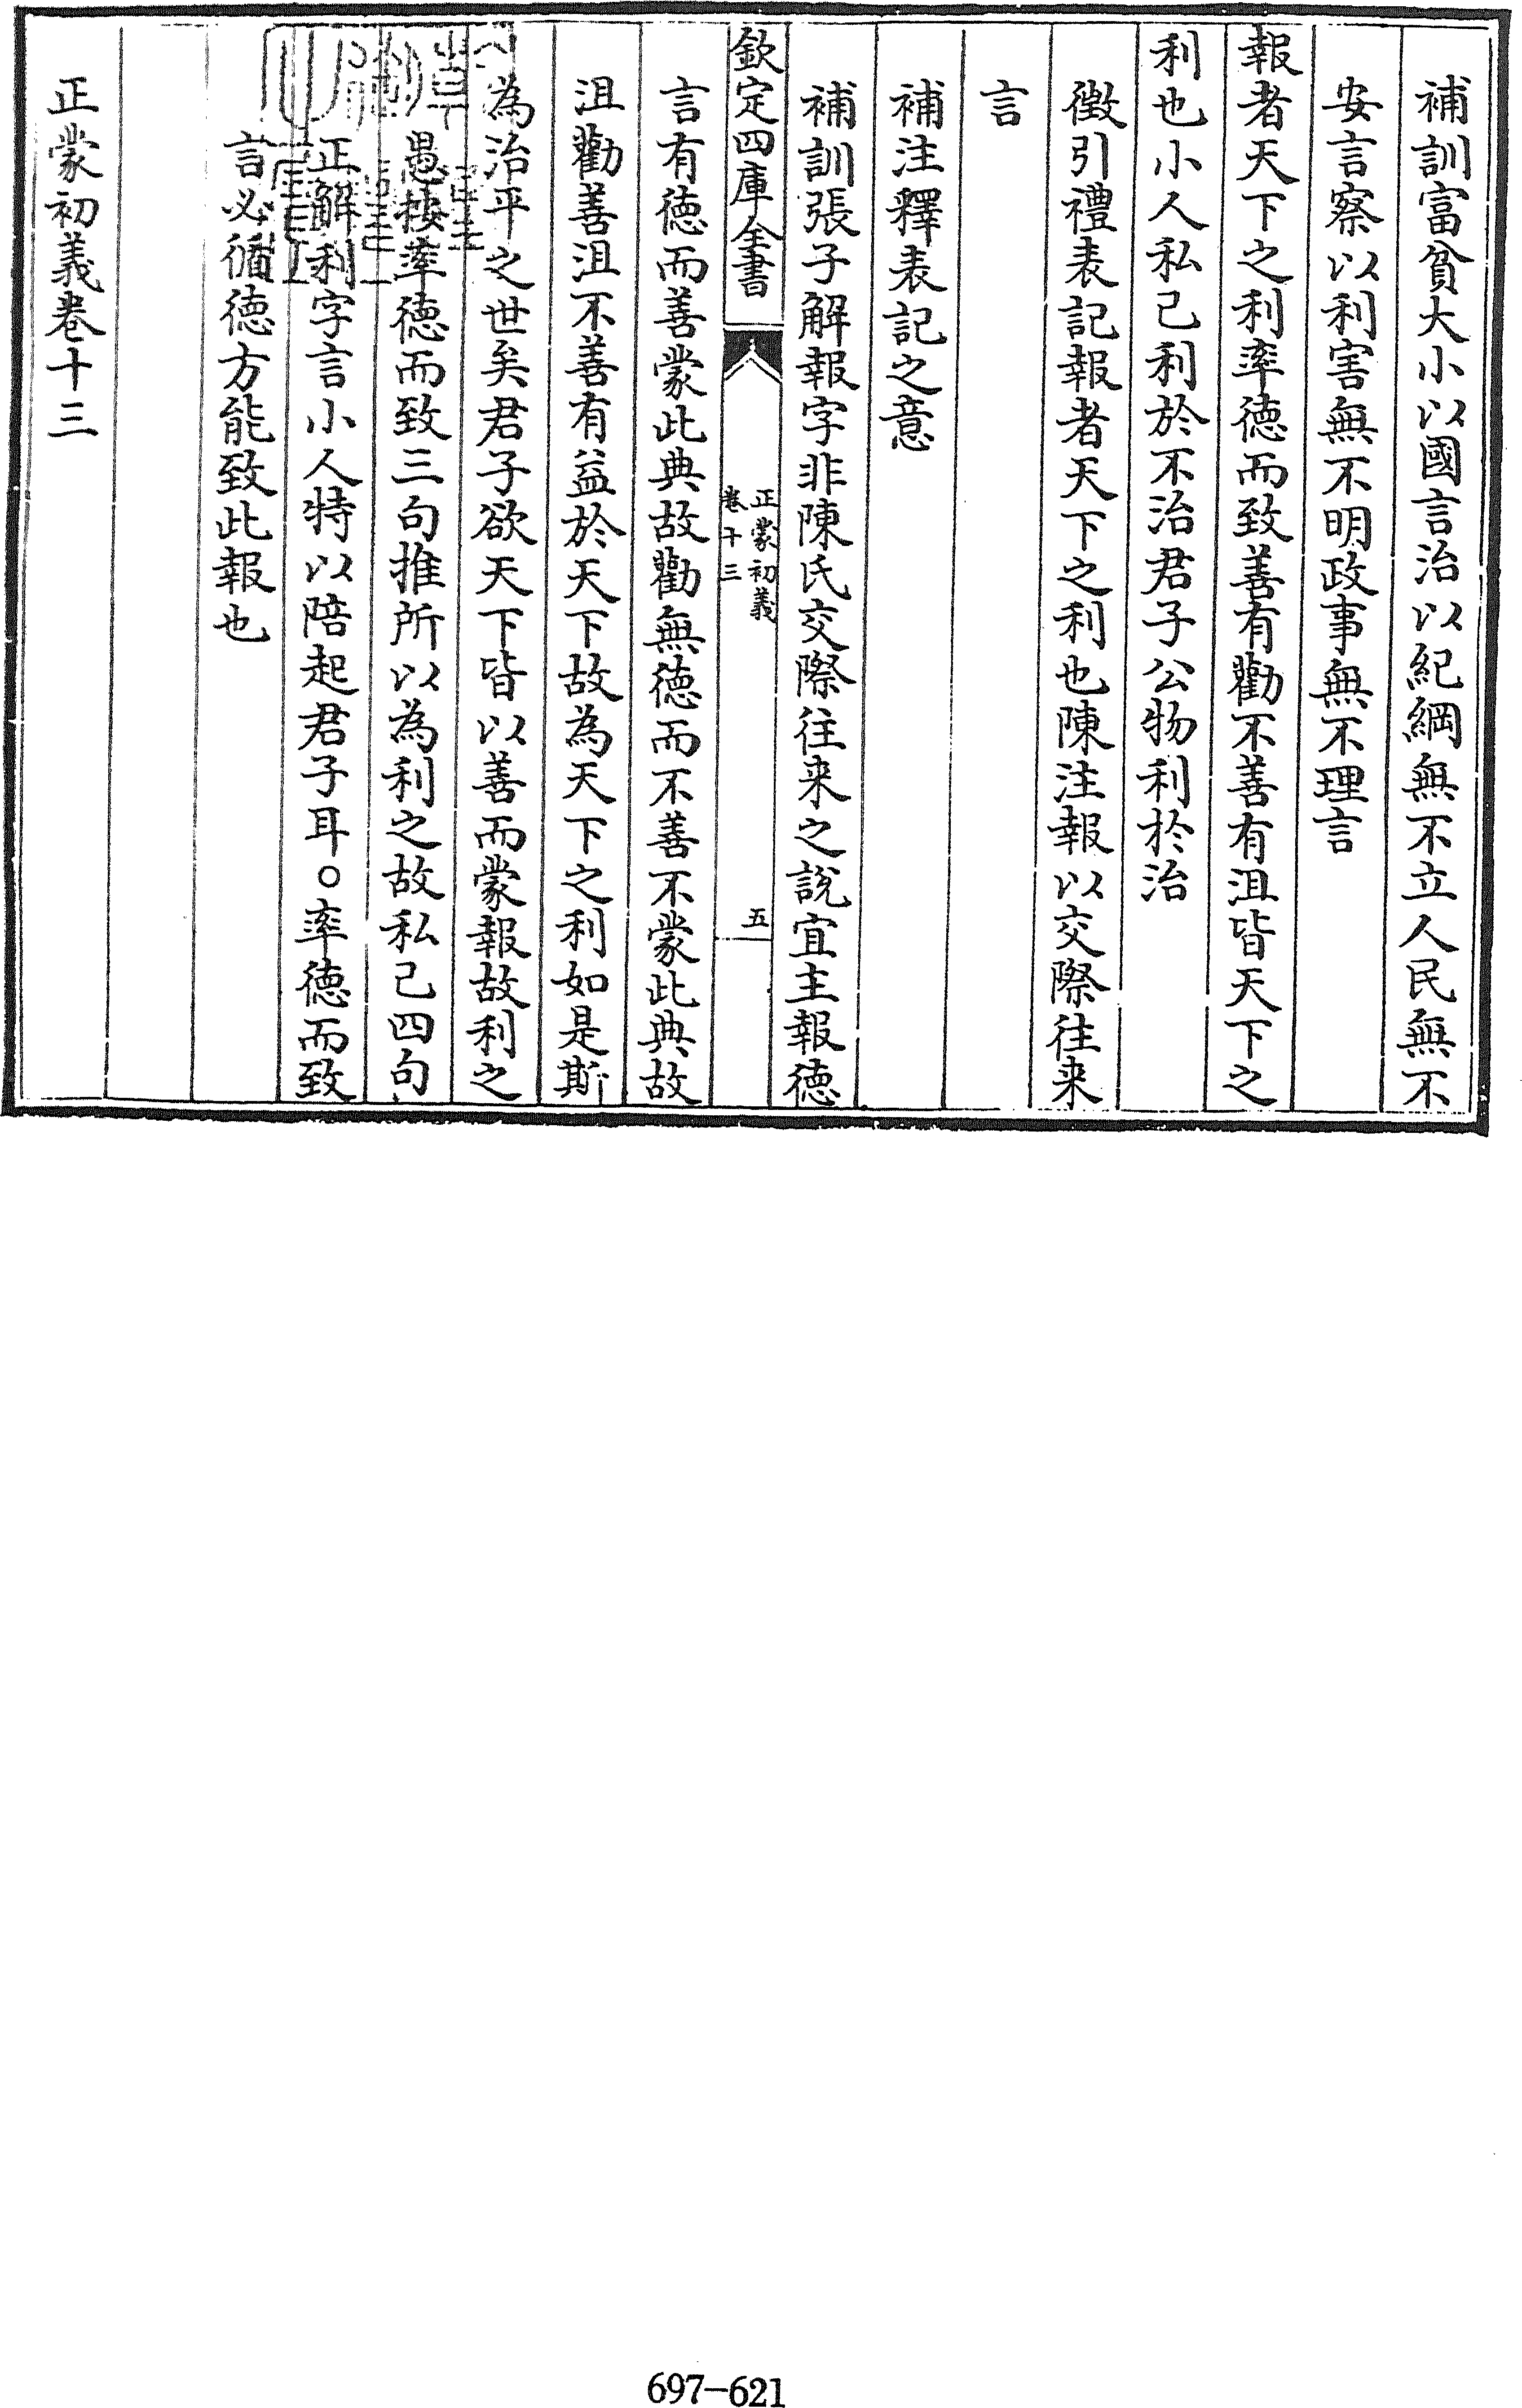 補訓富貧大小以國言治以紀綱無不立人民無不
安言察以利害無不明政事無不理言
報者天下之利率徳而致善有勸不善有沮皆天下之
利也小人私己利於不治君子公物利於治
徴引禮表記報者天下之利也陳注報以交際往来
言
補注釋表記之意
補訓張子解報字非陳氏交際往来之說宜主報徳
欽定四庫全書
正蒙初義
卷十三
五
言有徳而善蒙此典故勸無徳而不善不蒙此典故
沮勸善沮不善有益於天下故為天下之利如是斯
為治平之世矣君子欲天下皆以善而蒙報故利之
愚按率徳而致三句推所以為利之故私己四句
正解利字言小人特以陪起君子耳○率徳而致
言必循徳方能致此報也
正蒙初義卷十三
697-621